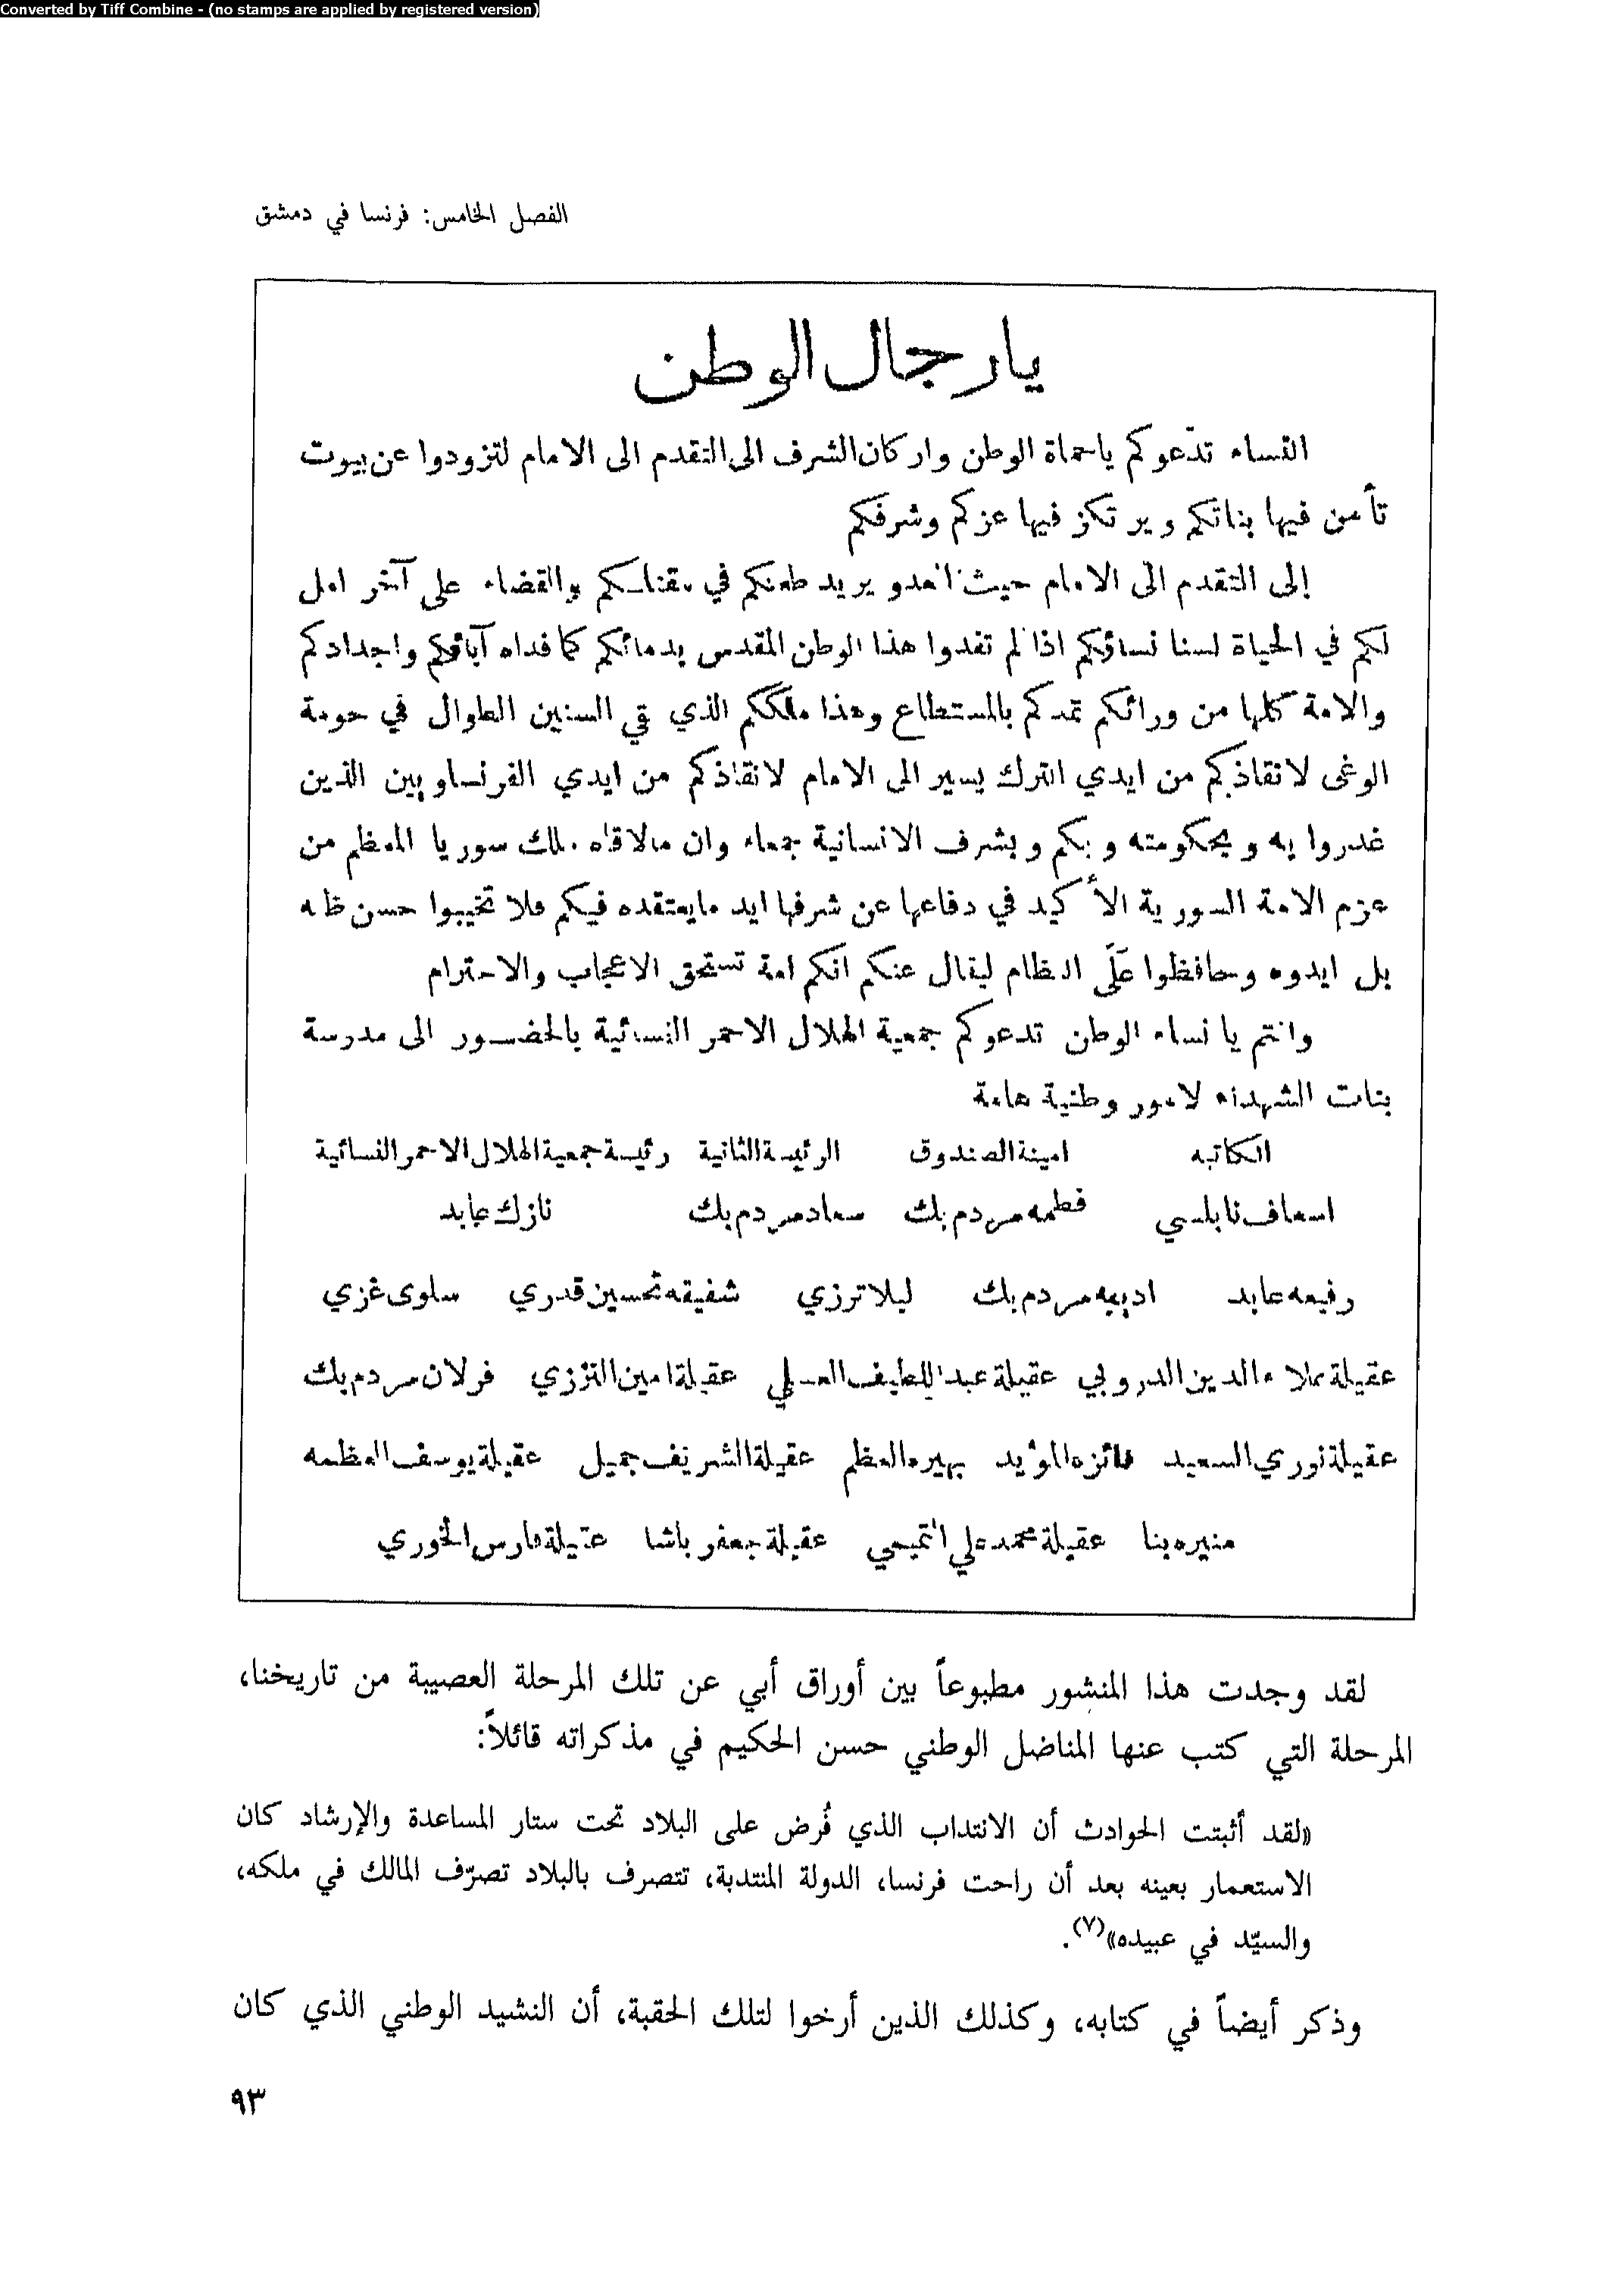 Converted by Tiff Combine - (no stamps are applied by registered version)
الفصل الخامس: فرنسا في دمشق
يا رجال الوطن
النساء تدعوكم يا حماة الوطن واركان الشرف الى التقدم الى الامام لتزودوا عن بيوت
تأمن فيها بناتكم ويرتكز فيها عزكم وشرفكم
إلى التقدم الى الامام حيث العدو يريد طعنكم في والقضاء على آخر امل
لكم في الحياة لسنا نساؤكم اذا لم تفدوا هذا الوطن المقدس بدمائكم كما فداه آباؤكم واجدادكم
والامة كلها من ورائكم تمدكم بالمستطاع وهذا ملككم الذي بقي السنين الطوال في حومة
الوغى لانقاذكم من ايدي الترك يسير الى الامام لانقاذكم من ايدي الفرنساويين الذين
غدروا به وبحكومته وبكم وبشرف الانسانية جمعاء وان مالاقاه ملك سوريا المعظم من
عزم الامة السورية الأكيد في دفاعها عن شرفها ايد مايعتقده فيكم فلا تخيبوا حسن ظنه
بل ايدوه وحافظوا على النظام ليقال عنكم انكم امة تستحق الاعجاب والاحترام
وانتم يا نساء الوطن تدعوكم جمعية الهلال الاحمر النسائية بالحضور الى مدرسة
بنات الشهداء لامور وطنية هامة
الكاتبه امينة الصندوق الرئيسة الثانية رئيسة جمعية الهلال الاحمر النسائية
اسعاف نابلسي فطمه مردم بك سعاد مردم بك نازك عابد
رفيعه عابد اديبه مردم بك ليلا ترزي شفيقه تحسين قدري سلوى غزي
عقيلة علاء الدين الدروبي عقيلة عبد اللطيف العسلي عقيلة امين الترزي فرلان مردم بك
عقيلة نوري السعيد فائزه المؤيد بهيره العظم عقيلة الشريف جميل عقيلة يوسف العظمه
منيره بنا عقيلة محمد علي التميمي عقيلة جعفر باشا عقيلة فارس الخوري
لقد وجدت هذا المنشور مطبوعاً بين أوراق أبي عن تلك المرحلة العصيبة من تاريخنا،
المرحلة التي كتب عنها المناضل الوطني حسن الحكيم في مذكراته قائلاً:
«لقد أثبتت الحوادث أن الانتداب الذي فُرض على البلاد تحت ستار المساعدة والإرشاد كان
الاستعمار بعينه بعد أن راحت فرنسا، الدولة المنتدبة، تتصرف بالبلاد تصرّف المالك في ملكه،
والسيّد في عبيده»(٧).
وذكر أيضاً في كتابه، وكذلك الذين أرخوا لتلك الحقبة، أن النشيد الوطني الذي كان
٩٣